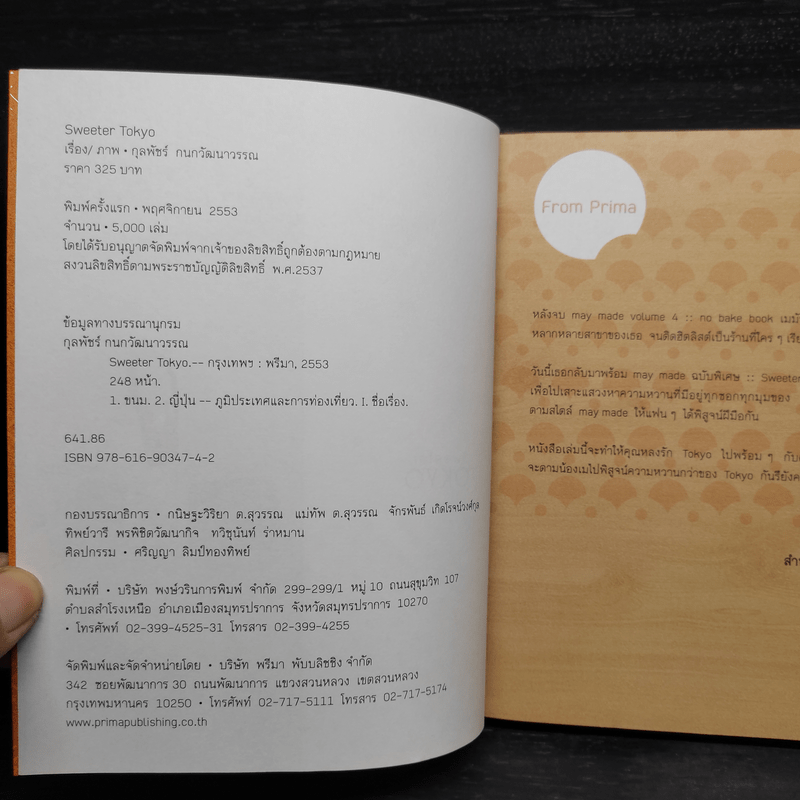 Sweeter Tokyo
เรื่อง/ ภาพ • กุลพัชร์ กนกวัฒนาวรรณ
ราคา 325 บาท
พิมพ์ครั้งแรก • พฤศจิกายน 2553
จำนวน • 5,000 เล่ม
โดยได้รับอนุญาตจัดพิมพ์จากเจ้าของลิขสิทธิ์ถูกต้องตามกฎหมาย
สงวนลิขสิทธิ์ตามพระราชบัญญัติลิขสิทธิ์ พ.ศ.2537
ข้อมูลทางบรรณานุกรม
กุลพัชร์ กนกวัฒนาวรรณ
Sweeter Tokyo.-- กรุงเทพฯ : พรีมา, 2553
248 หน้า.
1. ขนม. 2. ญี่ปุ่น -- ภูมิประเทศและการท่องเที่ยว. I. ชื่อเรื่อง.
641.86
ISBN 978-616-90347-4-2
กองบรรณาธิการ • กนิษฐะวิริยา ต.สุวรรณ แม่ทัพ ต.สุวรรณ จักรพันธ์ เกิดโรจน์วงศ์กุล
ทิพย์วารี พรพิชิตวัฒนากิจ ทวิชุนันท์ ร่าหมาน
ศิลปกรรม • ศริญญา ลิมป์ทองทิพย์
พิมพ์ที่ • บริษัท พงษ์วรินการพิมพ์ จำกัด 299-299/1 หมู่ 10 ถนนสุขุมวิท 107
ตำบลสำโรงเหนือ อำเภอเมืองสมุทรปราการ จังหวัดสมุทรปราการ 10270
• โทรศัพท์ 02-399-4525-31 โทรสาร 02-399-4255
จัดพิมพ์และจัดจำหน่ายโดย • บริษัท พรีมา พับบลิชชิง จำกัด
342 ซอยพัฒนาการ 30 ถนนพัฒนาการ แขวงสวนหลวง เขตสวนหลวง
กรุงเทพมหานคร 10250 • โทรศัพท์ 02-717-5111 โทรสาร 02-717-5174
www.primapublishing.co.th
From Prima
หลังจบ may made volume 4 :: no bake book เมมั
หลากหลายสาขาของเธอ จนติดฮิตลิสต์เป็นร้านที่ใคร ๆ เรีย
วันนี้เธอกลับมาพร้อม may made ฉบับพิเศษ :: Sweeter
เพื่อไปเสาะแสวงหาความหวานที่มีอยู่ทุกซอกทุกมุมของ
ตามสไตล์ may made ให้แฟน ๆ ได้พิสูจน์ฝีมือกัน
หนังสือเล่มนี้จะทำให้คุณหลงรัก Tokyo ไปพร้อม ๆ กับ
จะตามน้องเมไปพิสูจน์ความหวานกว่าของ Tokyo กันรึยังค
สำ